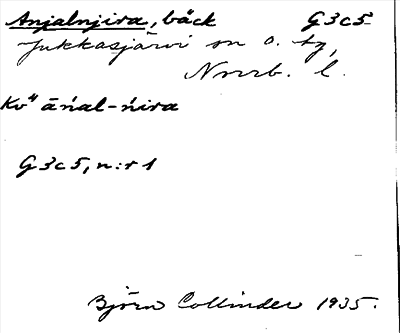 Anjalnjira, bäck G3c5
Jukkasjärvi sn o. tg,
Norrb. l.
Kv" āńal-ńira
G3c5, n:r 1
Björn Collinder 1935.